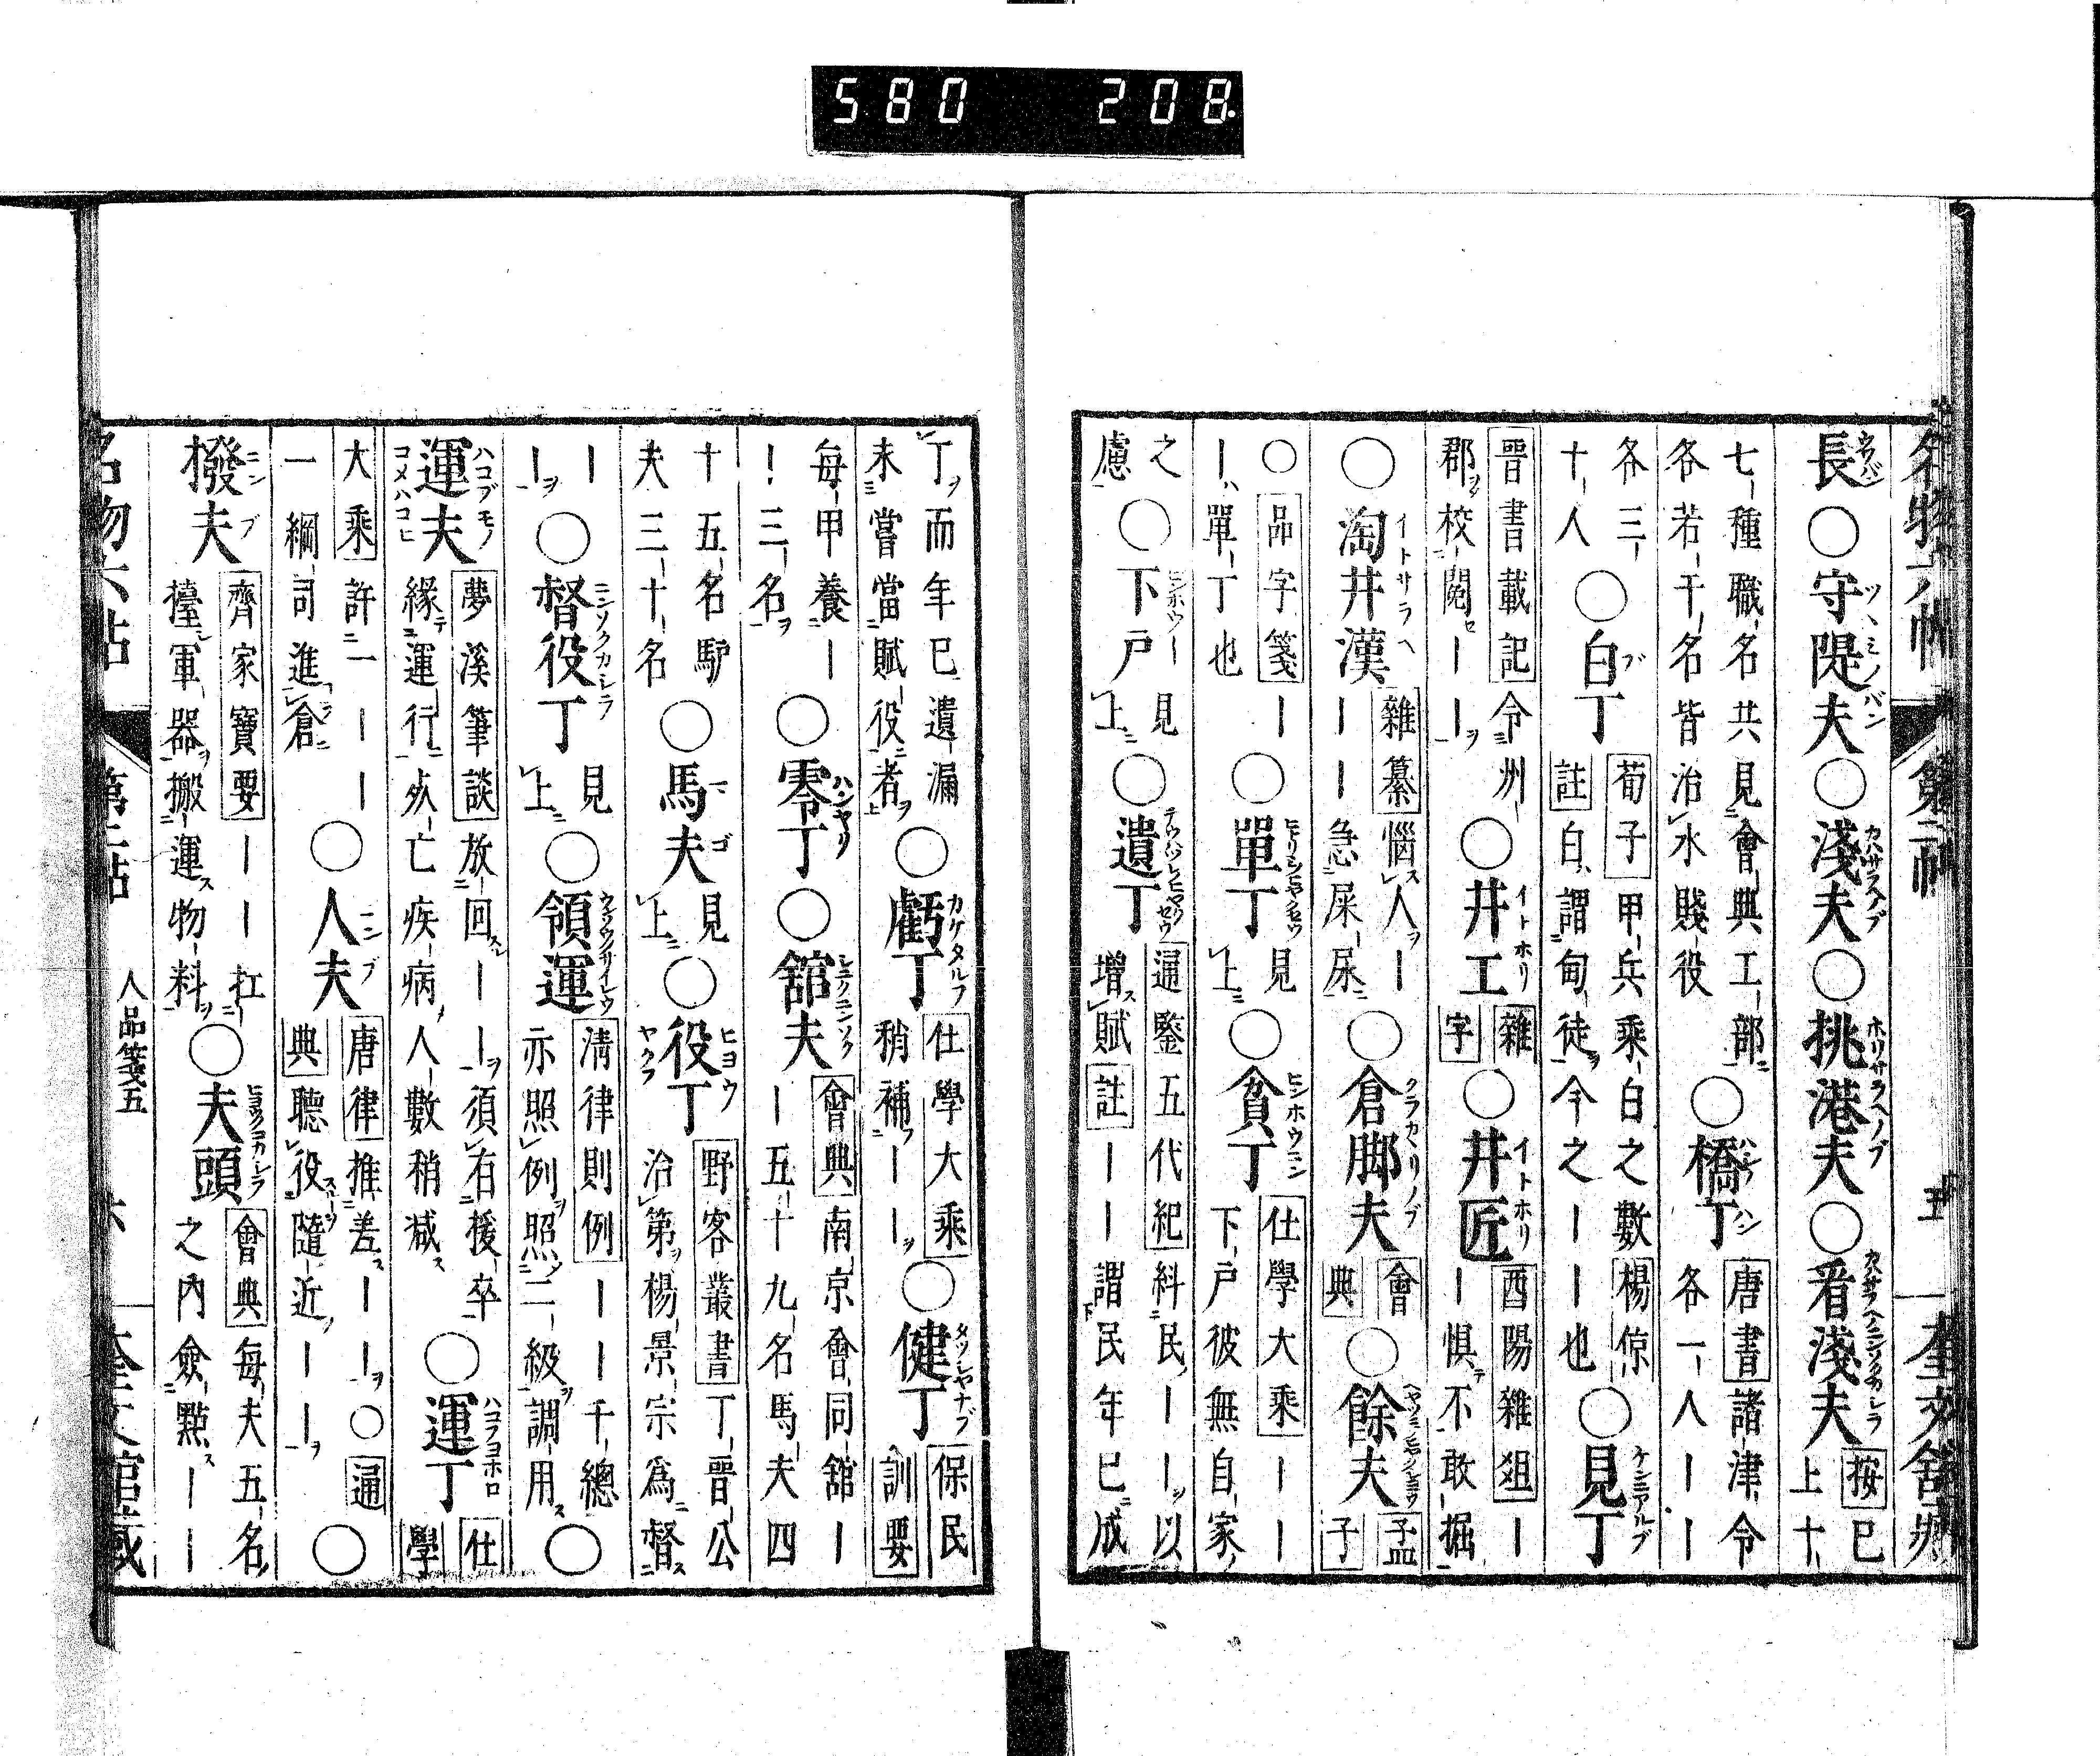 580 208.
名物六帖 第二帖 五 奎文舘藏
長○守隄夫○淺夫○挑港夫○看淺夫 按已上十
七種職名共見會典工部各若干名皆治水賤役○橋丁 唐書諸津令各一人丨丨
各三十人○白丁 荀子甲兵乘白之數楊倞註白謂甸徒今之丨丨也○見丁
晉書載記令州郡校閱丨丨○井工 雜字○井匠 酉陽雜俎丨丨惧不敢掘
○淘井漢 雜纂惱人丨丨丨急屎尿○倉脚夫 會典○餘夫 孟子
○品字箋丨丨單丁也○單丁 見上○貧丁 仕學大乘丨丨下戶彼無自家
之慮○下戶 見上○遺丁 通鑒五代紀糾民丨丨以增賦註丨丨謂民年已成
丁而年已遺漏未嘗當賦役者○虧丁 仕學大乘稍補丨丨○健丁 保民訓要
每甲養丨丨三名○零丁○舘夫 會典南京會同舘丨丨五十九名馬夫四
十五名馿夫三十名○馬夫 見上○役丁 野客叢書丁晉公治第楊景宗為督
丨丨○督役丁 見上○領運 淸律則例丨丨千總亦照例照二級調用○
運夫 夢溪筆談放回丨丨須有援卒緣運行死亡疾病人數稍減○運丁 仕學
大乘許一丨丨一綱司進倉○人夫 唐律推差丨丨○通典聽役隨近丨丨○
撥夫 齊家寶要丨丨扛擡軍器搬運物料○夫頭 會典每夫五名之內僉點丨丨
名物六帖 第二帖 人品箋五 六 奎文舘藏